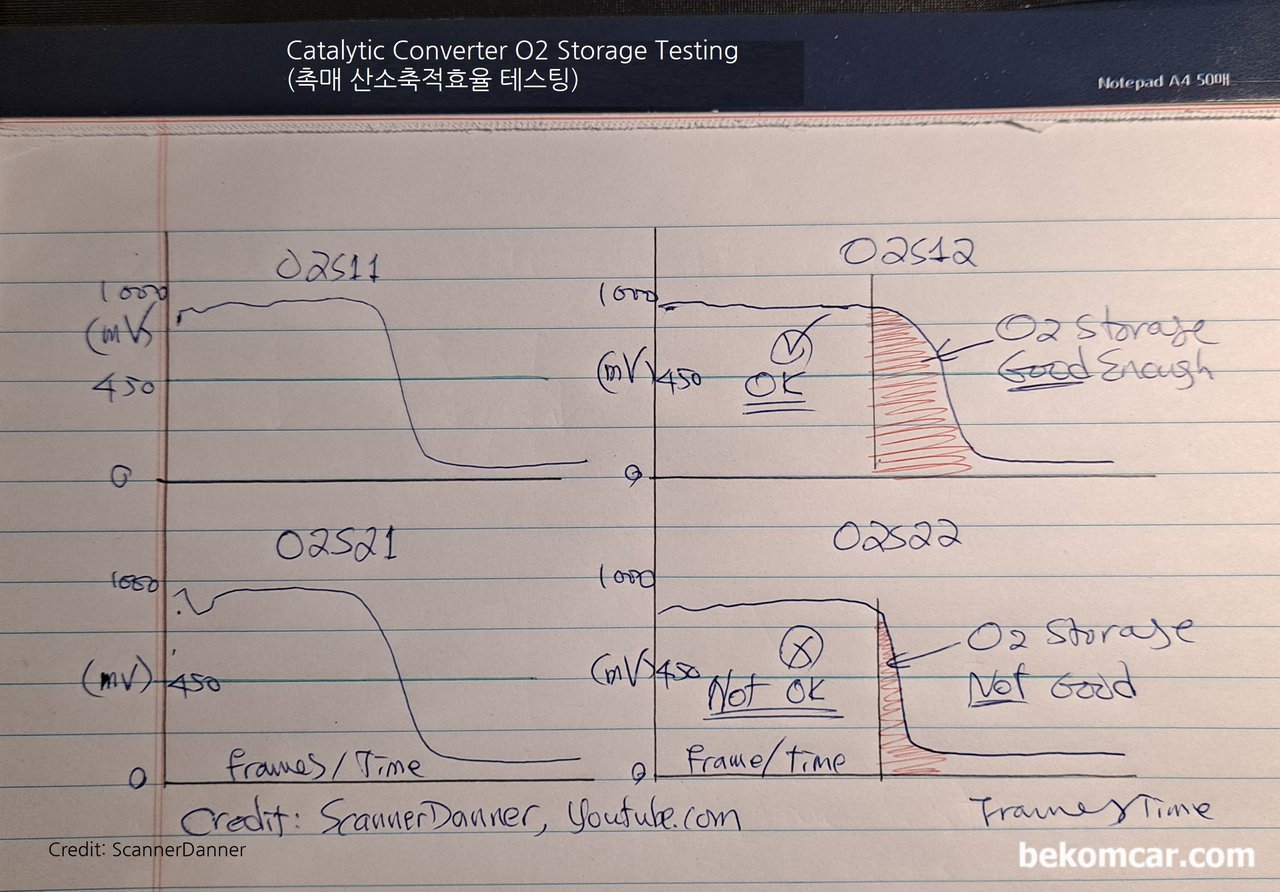 Catalytic Converter O2 Storage Testing
(촉매 산소축적효율 테스팅)
Notepad A4 50매
O2S11
1000
(mV)
450
0
O2S12
1000
(mV) 450
0
OK
O2 Storage
Good Enough
O2S21
1000
(mV) 450
0
Frames/Time
O2S22
1000
(mV) 450
0
Not OK
O2 Storage
Not Good
Frame/time
Frames/Time
Credit: ScannerDanner, Youtube.com
Credit: ScannerDanner
bekomcar.com